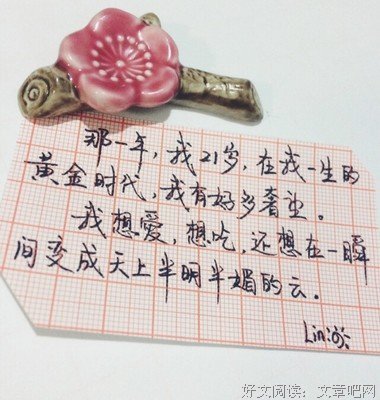 那一年，我21岁，在我一生的
黄金时代，我有好多奢望。
我想爱，想吃，还想在一瞬
间变成天上半明半媚的云。
Lin:
好文阅读：文章吧网